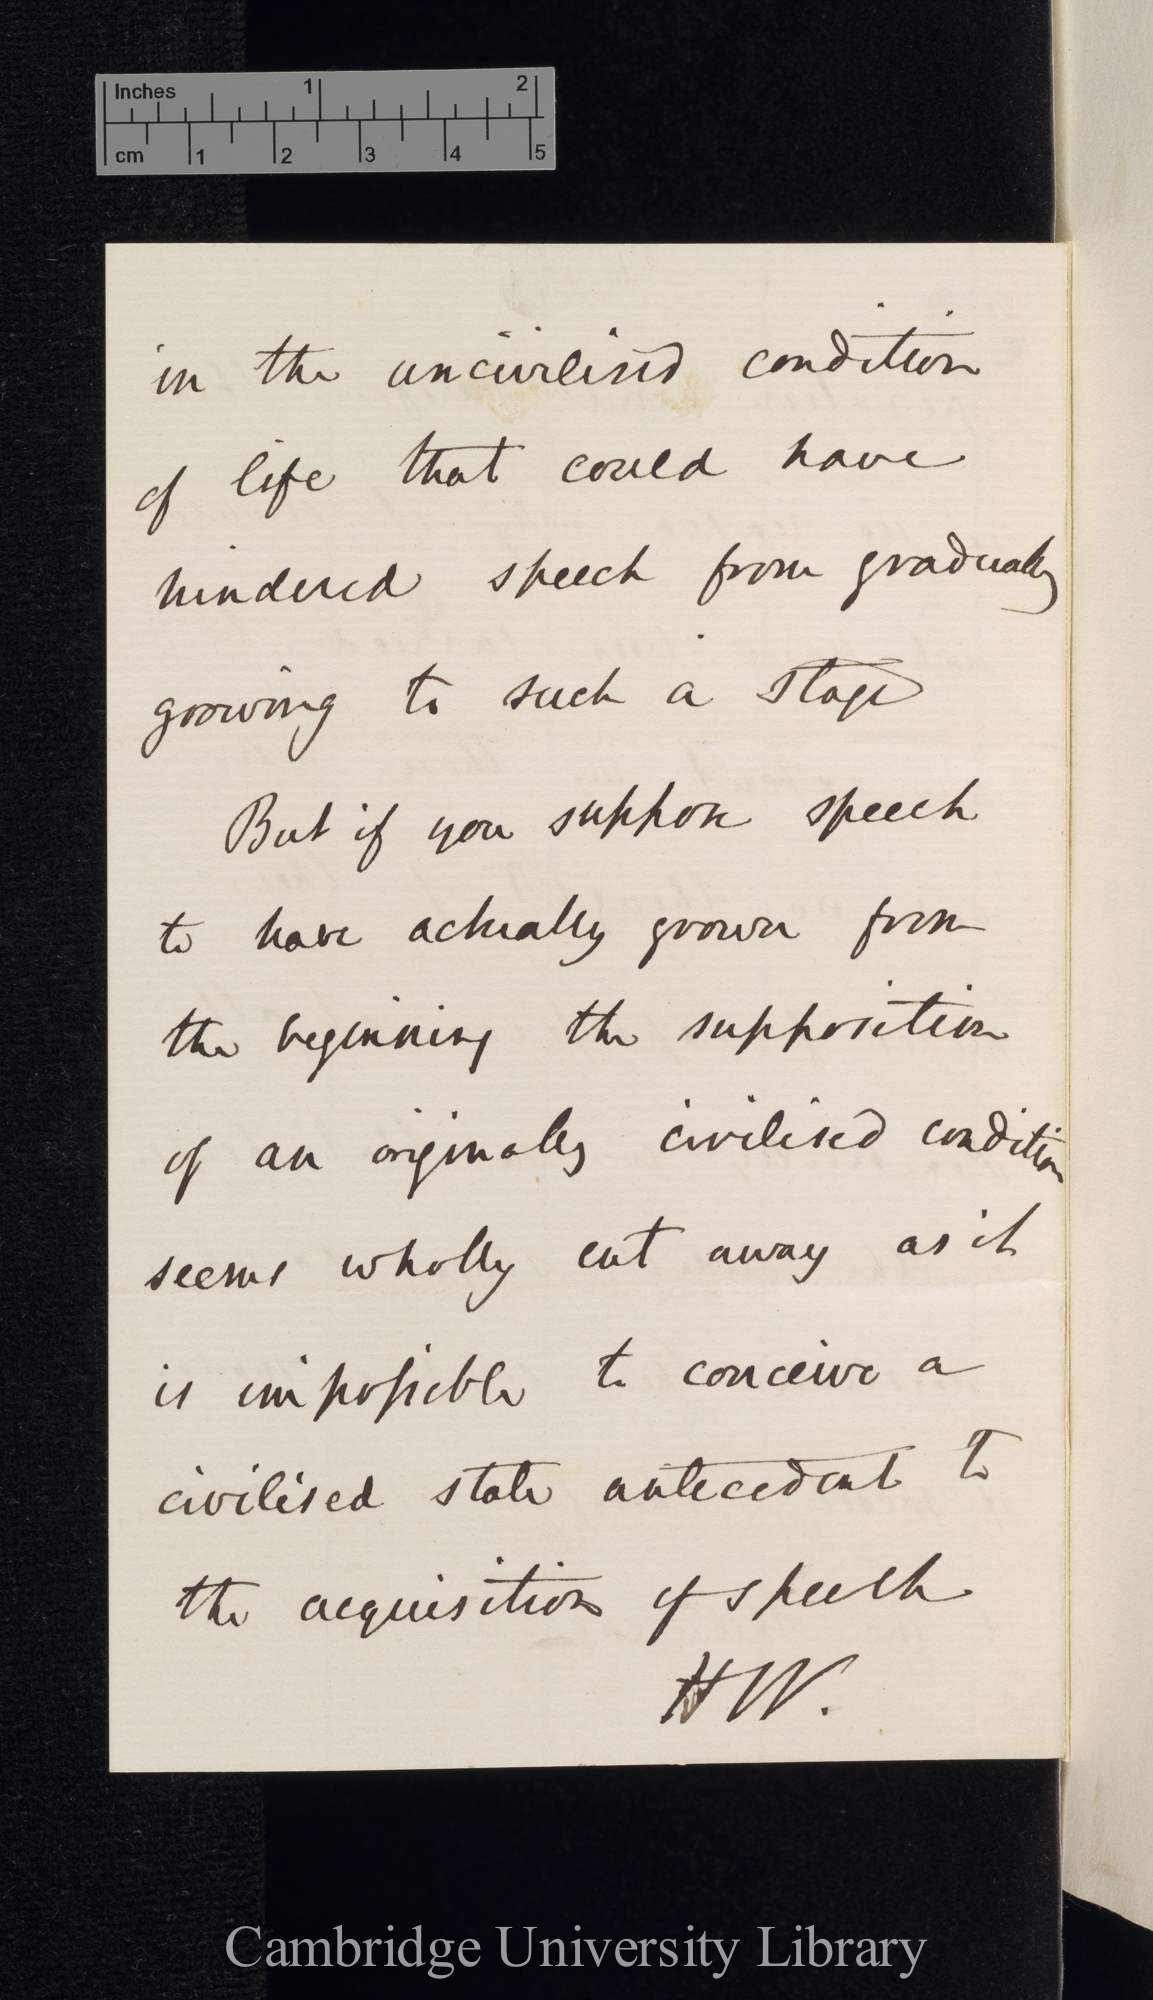 Inches 1 2
cm 1 2 3 4 5
in the uncivilised condition
of life that could have
hindered speech from gradually
growing to such a stage
But if you suppose speech
to have actually grown from
the beginning the supposition
of an originally civilised condition
seems wholly cut away as it
is impossible to conceive a
civilised state antecedent to
the acquisition of speech
HW.
Cambridge University Library